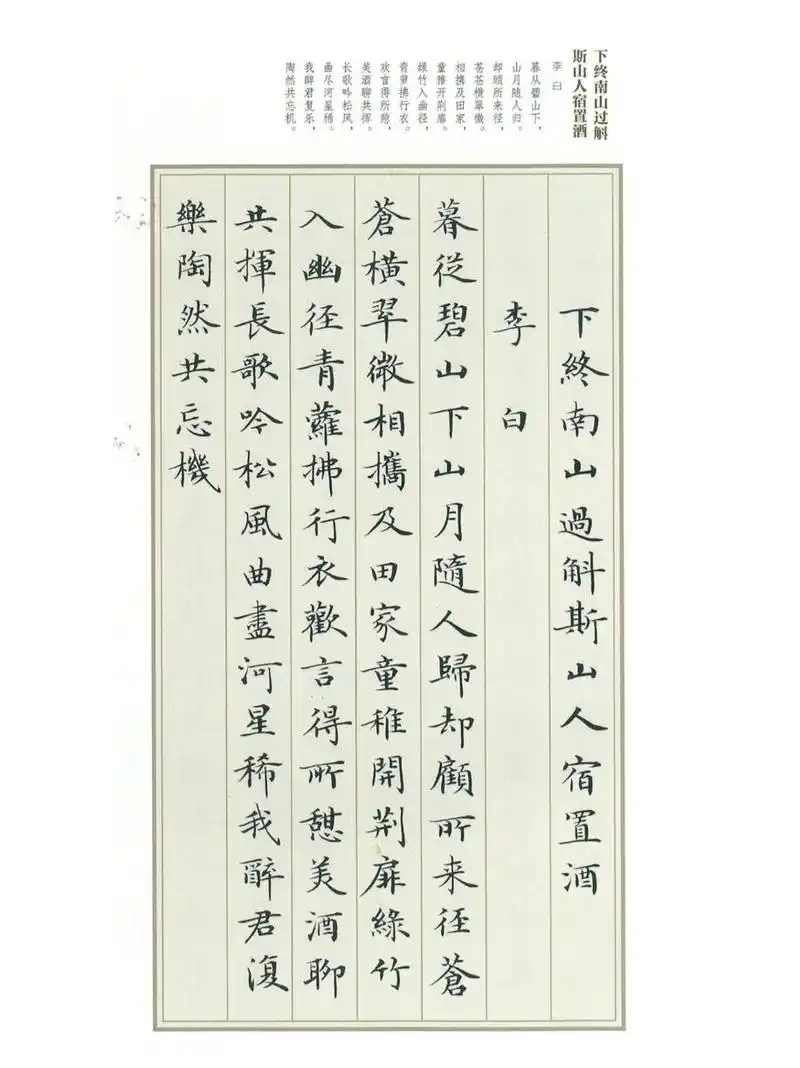 下终南山过斛
斯山人宿置酒
李白
暮从碧山下，
山月随人归。
却顾所来径，
苍苍横翠微。
相携及田家，
童稚开荆扉。
绿竹入幽径，
青萝拂行衣。
欢言得所憩，
美酒聊共挥。
长歌吟松风，
曲尽河星稀。
我醉君复乐，
陶然共忘机。
下終南山過斛斯山人宿置酒
李白
暮從碧山下山月隨人歸却顧所来徑蒼
蒼橫翠微相攜及田家童稚開荆扉綠竹
入幽徑青蘿拂行衣歡言得所憩美酒聊
共揮長歌吟松風曲盡河星稀我醉君復
樂陶然共忘機